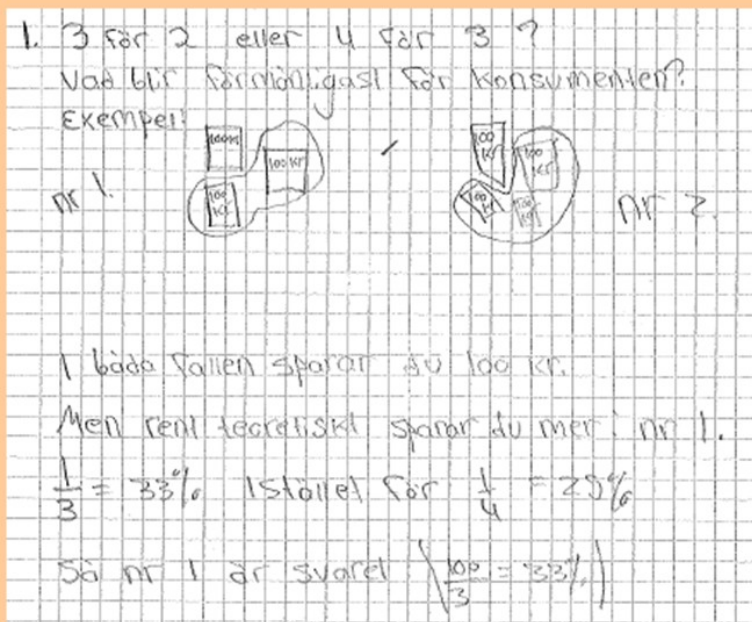 1. 3 för 2 eller 4 för 3?
Vad blir förmånligast för konsumenten?
Exempel:
100 kr
100 kr
100 kr
100 kr
100 kr
100 kr
100 kr
nr 1.
nr 2.
I båda fallen sparar du 100 kr.
Men rent teoretiskt sparar du mer i nr 1.
1/3 = 33% Istället för 1/4 = 25%
Så nr 1 är svaret (100/3 = 33%)